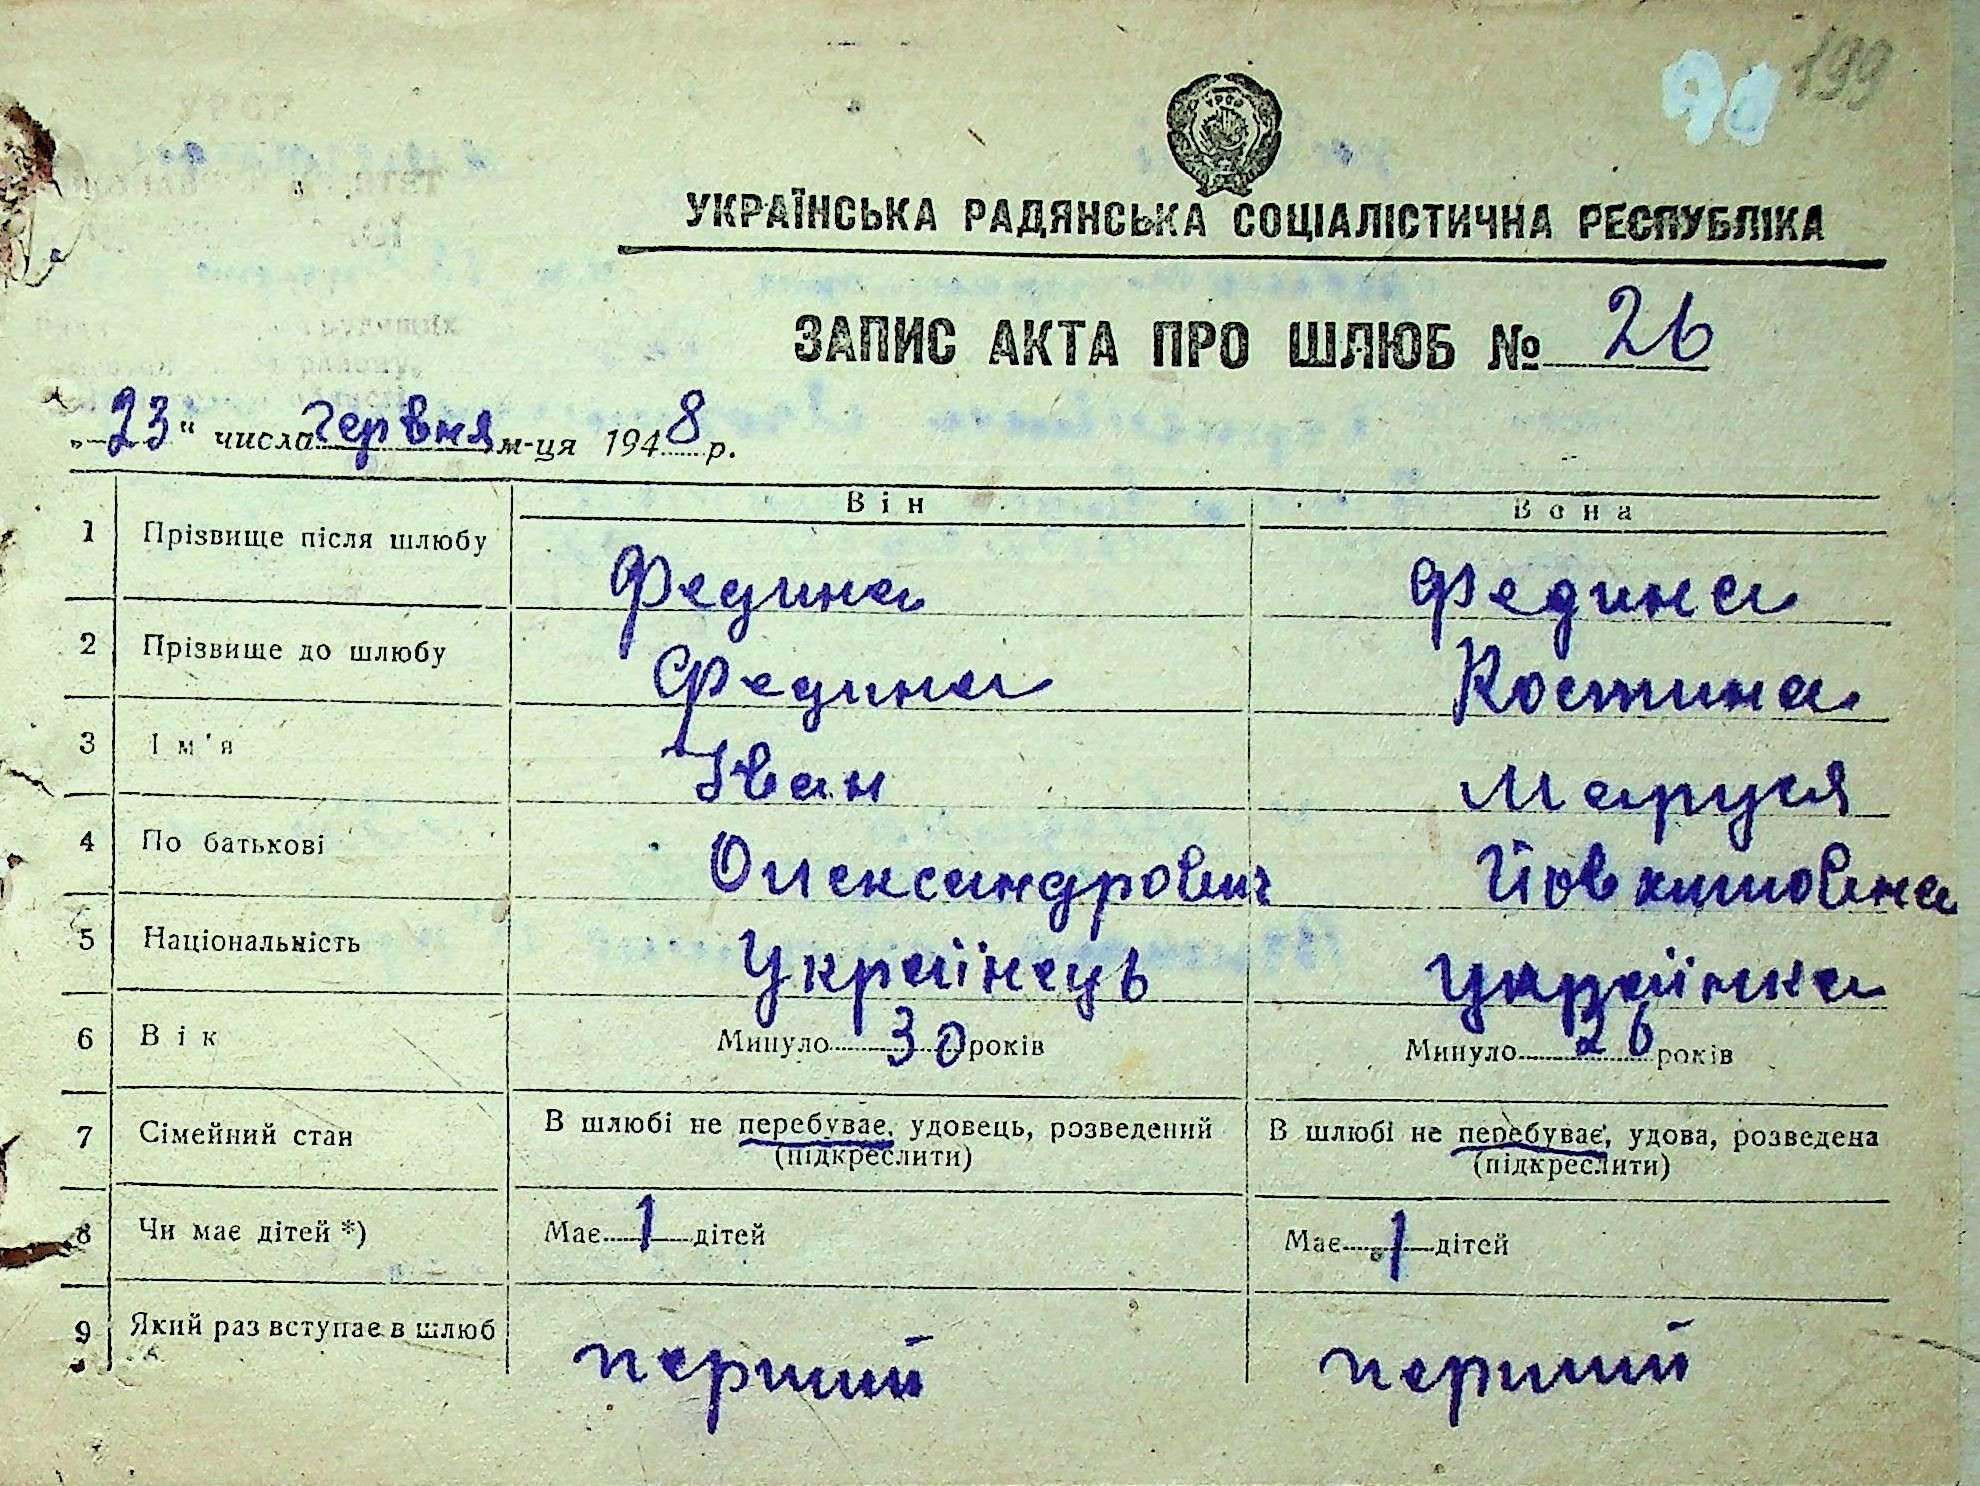 199
УРСР
УКРАЇНСЬКА РАДЯНСЬКА СОЦІАЛІСТИЧНА РЕСПУБЛІКА
ЗАПИС АКТА ПРО ШЛЮБ № 26
„23“ числа червня м-ця 1948 р.
Він Вона
1 Прізвище після шлюбу Федина Федина
2 Прізвище до шлюбу Федина Костина
3 Ім'я Іван Маруся
4 По батькові Олександрович
5 Національність Українець Українка
6 Вік Минуло 30 років Минуло 26 років
7 Сімейний стан В шлюбі не перебуває, удовець, розведений В шлюбі не перебуває, удова, розведена
(підкреслити) (підкреслити)
8 Чи має дітей *) Має 1 дітей Має 1 дітей
9 Який раз вступає в шлюб перший перший